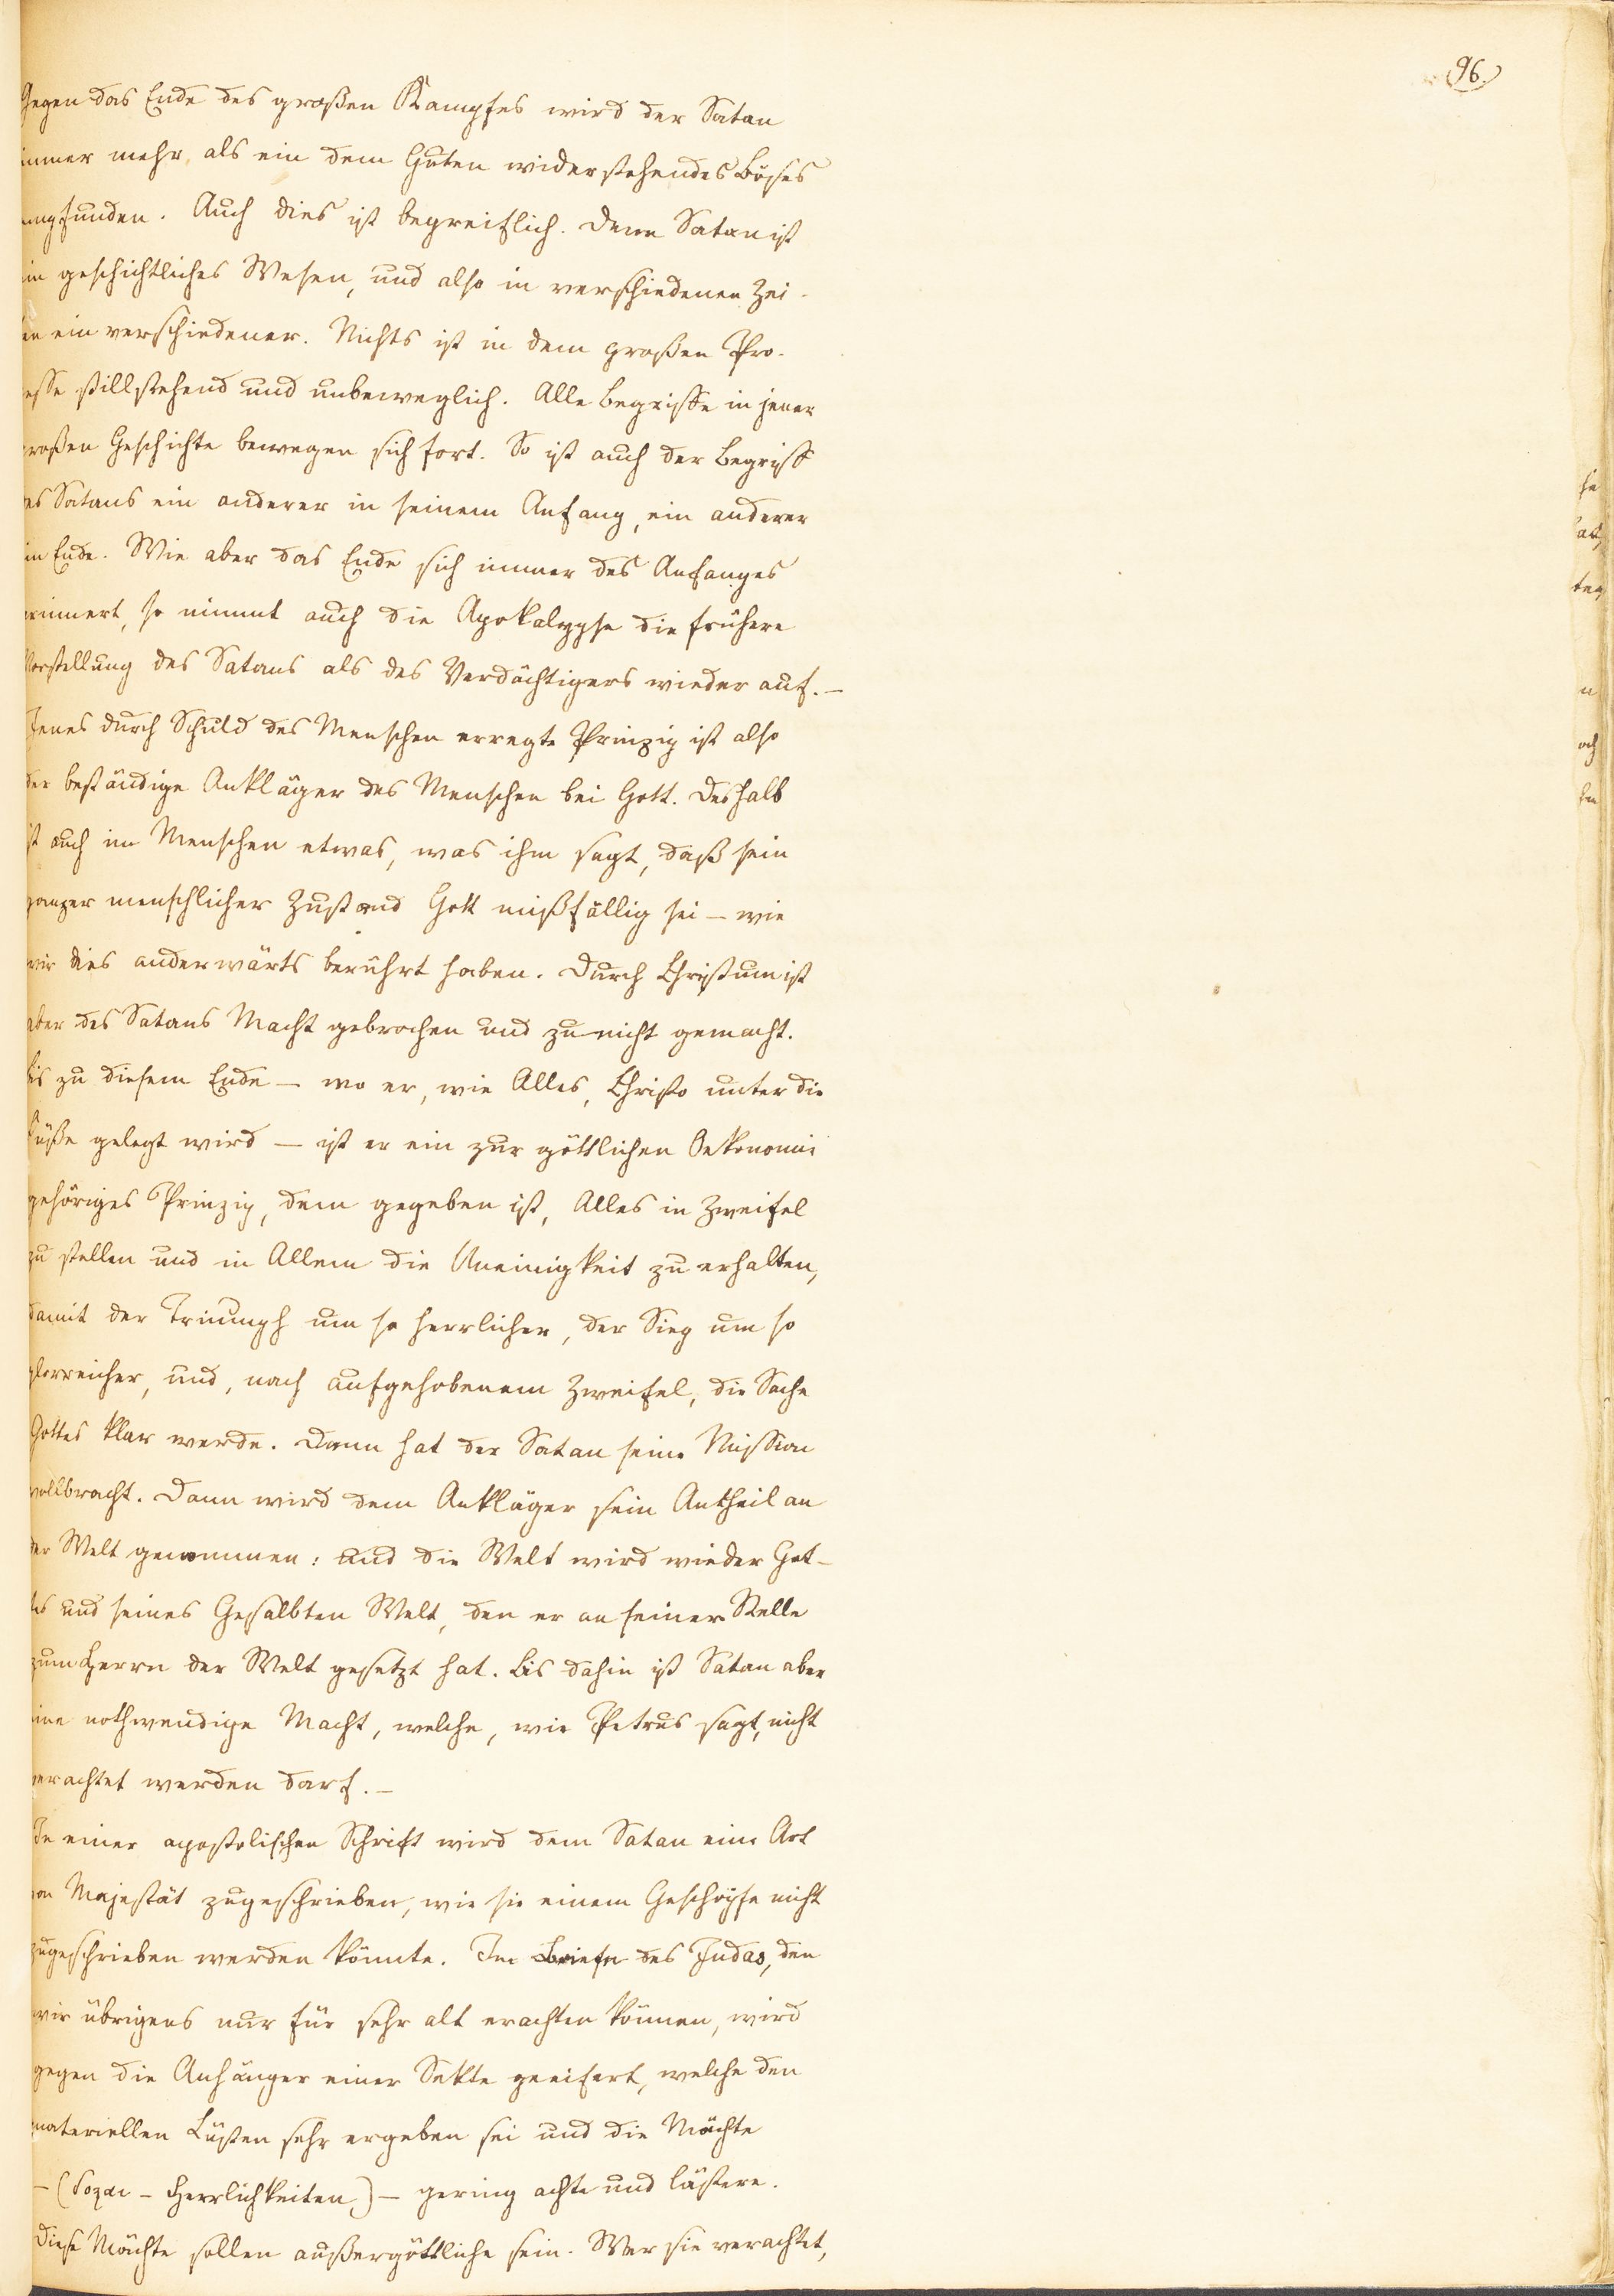 96.
Gegen das Ende des großen Kampfes wird der Satan
immer mehr als ein dem Guten widerstehendes Böses
empfunden. Auch dies ist begreiflich. Denn Satan ist
ein geschichtliches Wesen, und also in verschiedenen Zei-
ten ein verschiedener. Nichts ist in dem großen Pro-
cesse stillstehend und unbeweglich. Alle Begriffe in jener
großen Geschichte bewegen sich fort. So ist auch der Begriff
des Satans ein anderer in seinem Anfang, ein anderer
im Ende. Wie aber das Ende sich immer des Anfanges
erinnert, so nimmt auch die Apokalypse die frühere
Vorstellung des Satans als des Verdächtigers wieder auf. –
Jenes durch Schuld des Menschen erregte Prinzip ist also
der beständige Ankläger des Menschen bei Gott. Deshalb
ist auch im Menschen etwas, was ihm sagt, daß sein
ganzer menschlicher Zustand Gott mißfällig sei – wie
wir dies anderwärts berührt haben. Durch Christum ist
aber des Satans Macht gebrochen und zu nicht gemacht.
Bis zu diesem Ende – wo er, wie Alles, Christo unter die
Füße gelegt wird – ist er ein zur göttlichen Oekonomie
gehöriges Prinzip, dem gegeben ist, Alles in Zweifel
zu stellen und in Allem die Uneinigkeit zu erhalten,
damit der Triumph um so herrlicher, der Sieg um so
glorreicher, und, nach aufgehobenem Zweifel, die Sache
Gottes klar werde. Dann hat der Satan seine Mission
vollbracht. Dann wird dem Ankläger sein Antheil an
der Welt genommen: und die Welt wird wieder Got-
tes und seines Gesalbten Welt, den er an seiner Stelle
zum Herrn der Welt gesetzt hat. Bis dahin ist Satan aber
eine nothwendige Macht, welche, wie Petrus sagt, nicht
verachtet werden darf. –
In einer apostolischen Schrift wird dem Satan eine Art
von Majestät zugeschrieben, wie sie einem Geschöpfe nicht
zugeschrieben werden könnte. Im Briefe des Judas, den
wir übrigens nur für sehr alt erachten können, wird
gegen die Anhänger einer Sekte geeifert, welche den
materiellen Lüsten sehr ergeben sei und die Mächte
– (δοξαι – Herrlichkeiten) – gering achte und lästere.
Diese Mächte sollen außergöttliche sein. Wer sie verachtet,